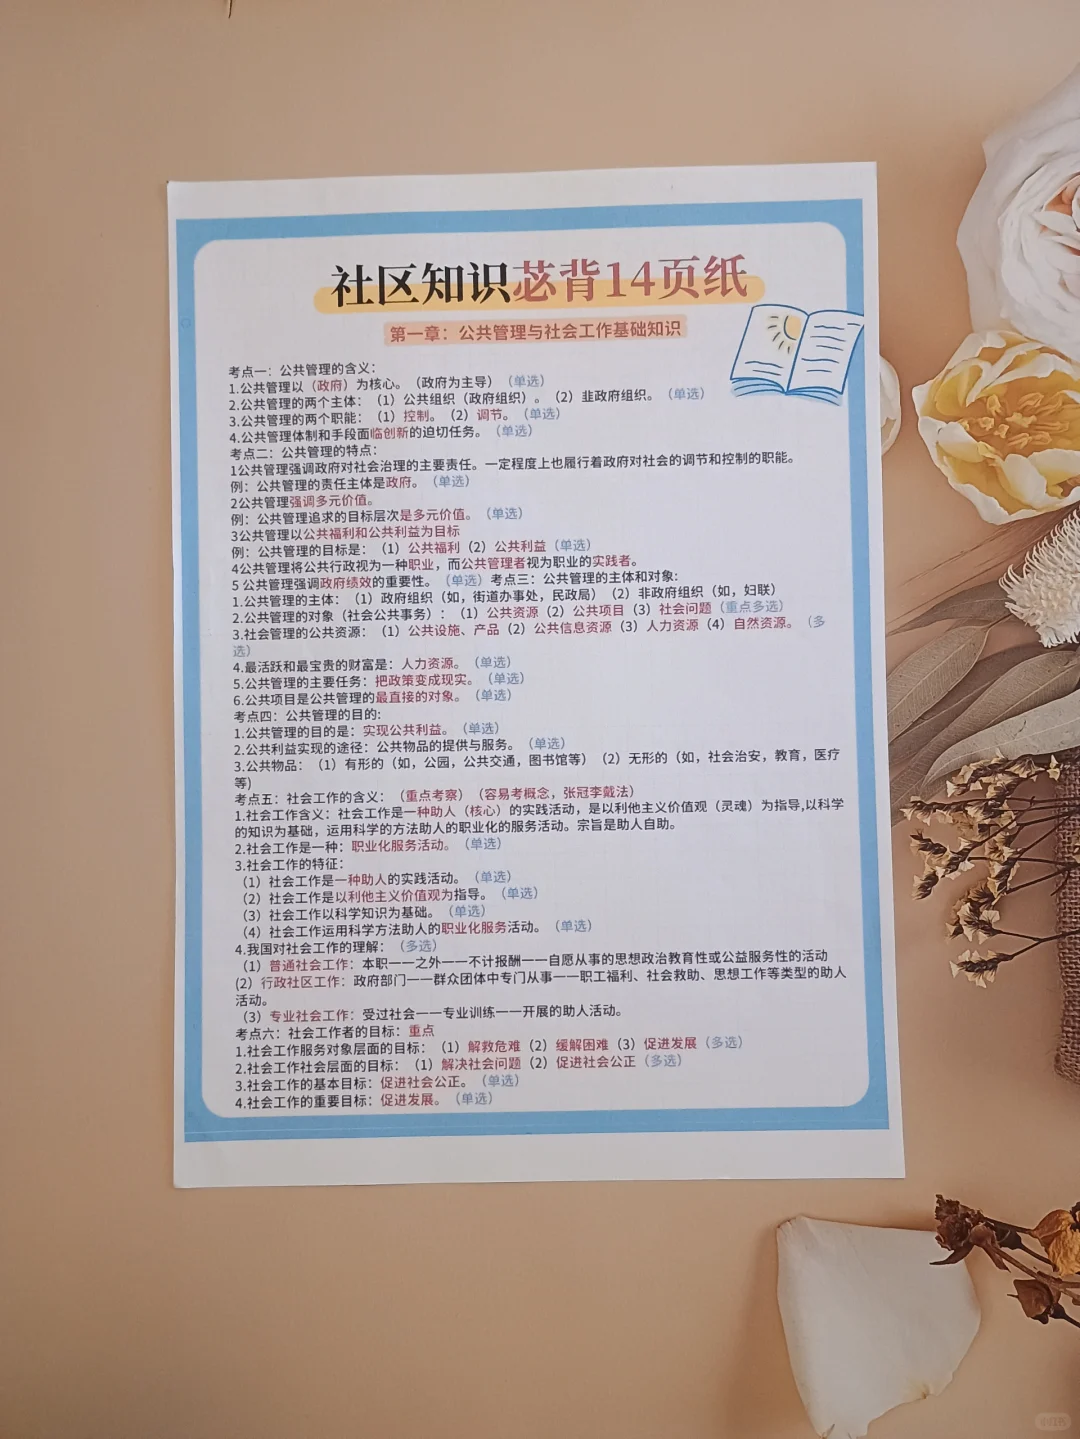 社区知识苾背14页纸
第一章：公共管理与社会工作基础知识
考点一：公共管理的含义：
1.公共管理以（政府）为核心。（政府为主导）（单选）
2.公共管理的两个主体：（1）公共组织（政府组织）。（2）韭政府组织。（单选）
3.公共管理的两个职能：（1）控制。（2）调节。（单选）
4.公共管理体制和手段面临创新的迫切任务。（单选）
考点二：公共管理的特点：
1公共管理强调政府对社会治理的主要责任。一定程度上也履行着政府对社会的调节和控制的职能。
例：公共管理的责任主体是政府。（单选）
2公共管理强调多元价值。
例：公共管理追求的目标层次是多元价值。（单选）
3公共管理以公共福利和公共利益为目标
例：公共管理的目标是：（1）公共福利（2）公共利益（单选）
4公共管理将公共行政视为一种职业，而公共管理者视为职业的实践者。
5 公共管理强调政府绩效的重要性。（单选）考点三：公共管理的主体和对象:
1.公共管理的主体：（1）政府组织（如，街道办事处，民政局）（2）非政府组织（如，妇联）
2.公共管理的对象（社会公共事务）：（1）公共资源（2）公共项目（3）社会问题（重点多选）
3.社会管理的公共资源：（1）公共设施、产品（2）公共信息资源（3）人力资源（4）自然资源。（多
选）
4.最活跃和最宝贵的财富是：人力资源。（单选）
5.公共管理的主要任务：把政策变成现实。（单选）
6.公共项目是公共管理的最直接的对象。（单选）
考点四：公共管理的目的:
1.公共管理的目的是：实现公共利益。（单选）
2.公共利益实现的途径：公共物品的提供与服务。（单选）
3.公共物品：（1）有形的（如，公园，公共交通，图书馆等）（2）无形的（如，社会治安，教育，医疗
等)
考点五：社会工作的含义：（重点考察）（容易考概念，张冠李戴法）
1.社会工作含义：社会工作是一种助人（核心）的实践活动，是以利他主义价值观（灵魂）为指导,以科学
的知识为基础，运用科学的方法助人的职业化的服务活动。宗旨是助人自助。
2.社会工作是一种：职业化服务活动。（单选）
3.社会工作的特征：
（1）社会工作是一种助人的实践活动。（单选）
（2）社会工作是以利他主义价值观为指导。（单选）
（3）社会工作以科学知识为基础。（单选）
（4）社会工作运用科学方法助人的职业化服务活动。（单选）
4.我国对社会工作的理解：（多选）
（1）普通社会工作：本职一一之外一一不计报酬一一自愿从事的思想政治教育性或公益服务性的活动
(2）行政社区工作：政府部门一一群众团体中专门从事一一职工福利、社会救助、思想工作等类型的助人
活动。
（3）专业社会工作：受过社会一一专业训练一一开展的助人活动。
考点六：社会工作者的目标：重点
1.社会工作服务对象层面的目标：（1）解救危难（2）缓解困难（3）促进发展（多选）
2.社会工作社会层面的目标：（1）解决社会问题（2）促进社会公正（多选）
3.社会工作的基本目标：促进社会公正。（单选）
4.社会工作的重要目标：促进发展。（单选）